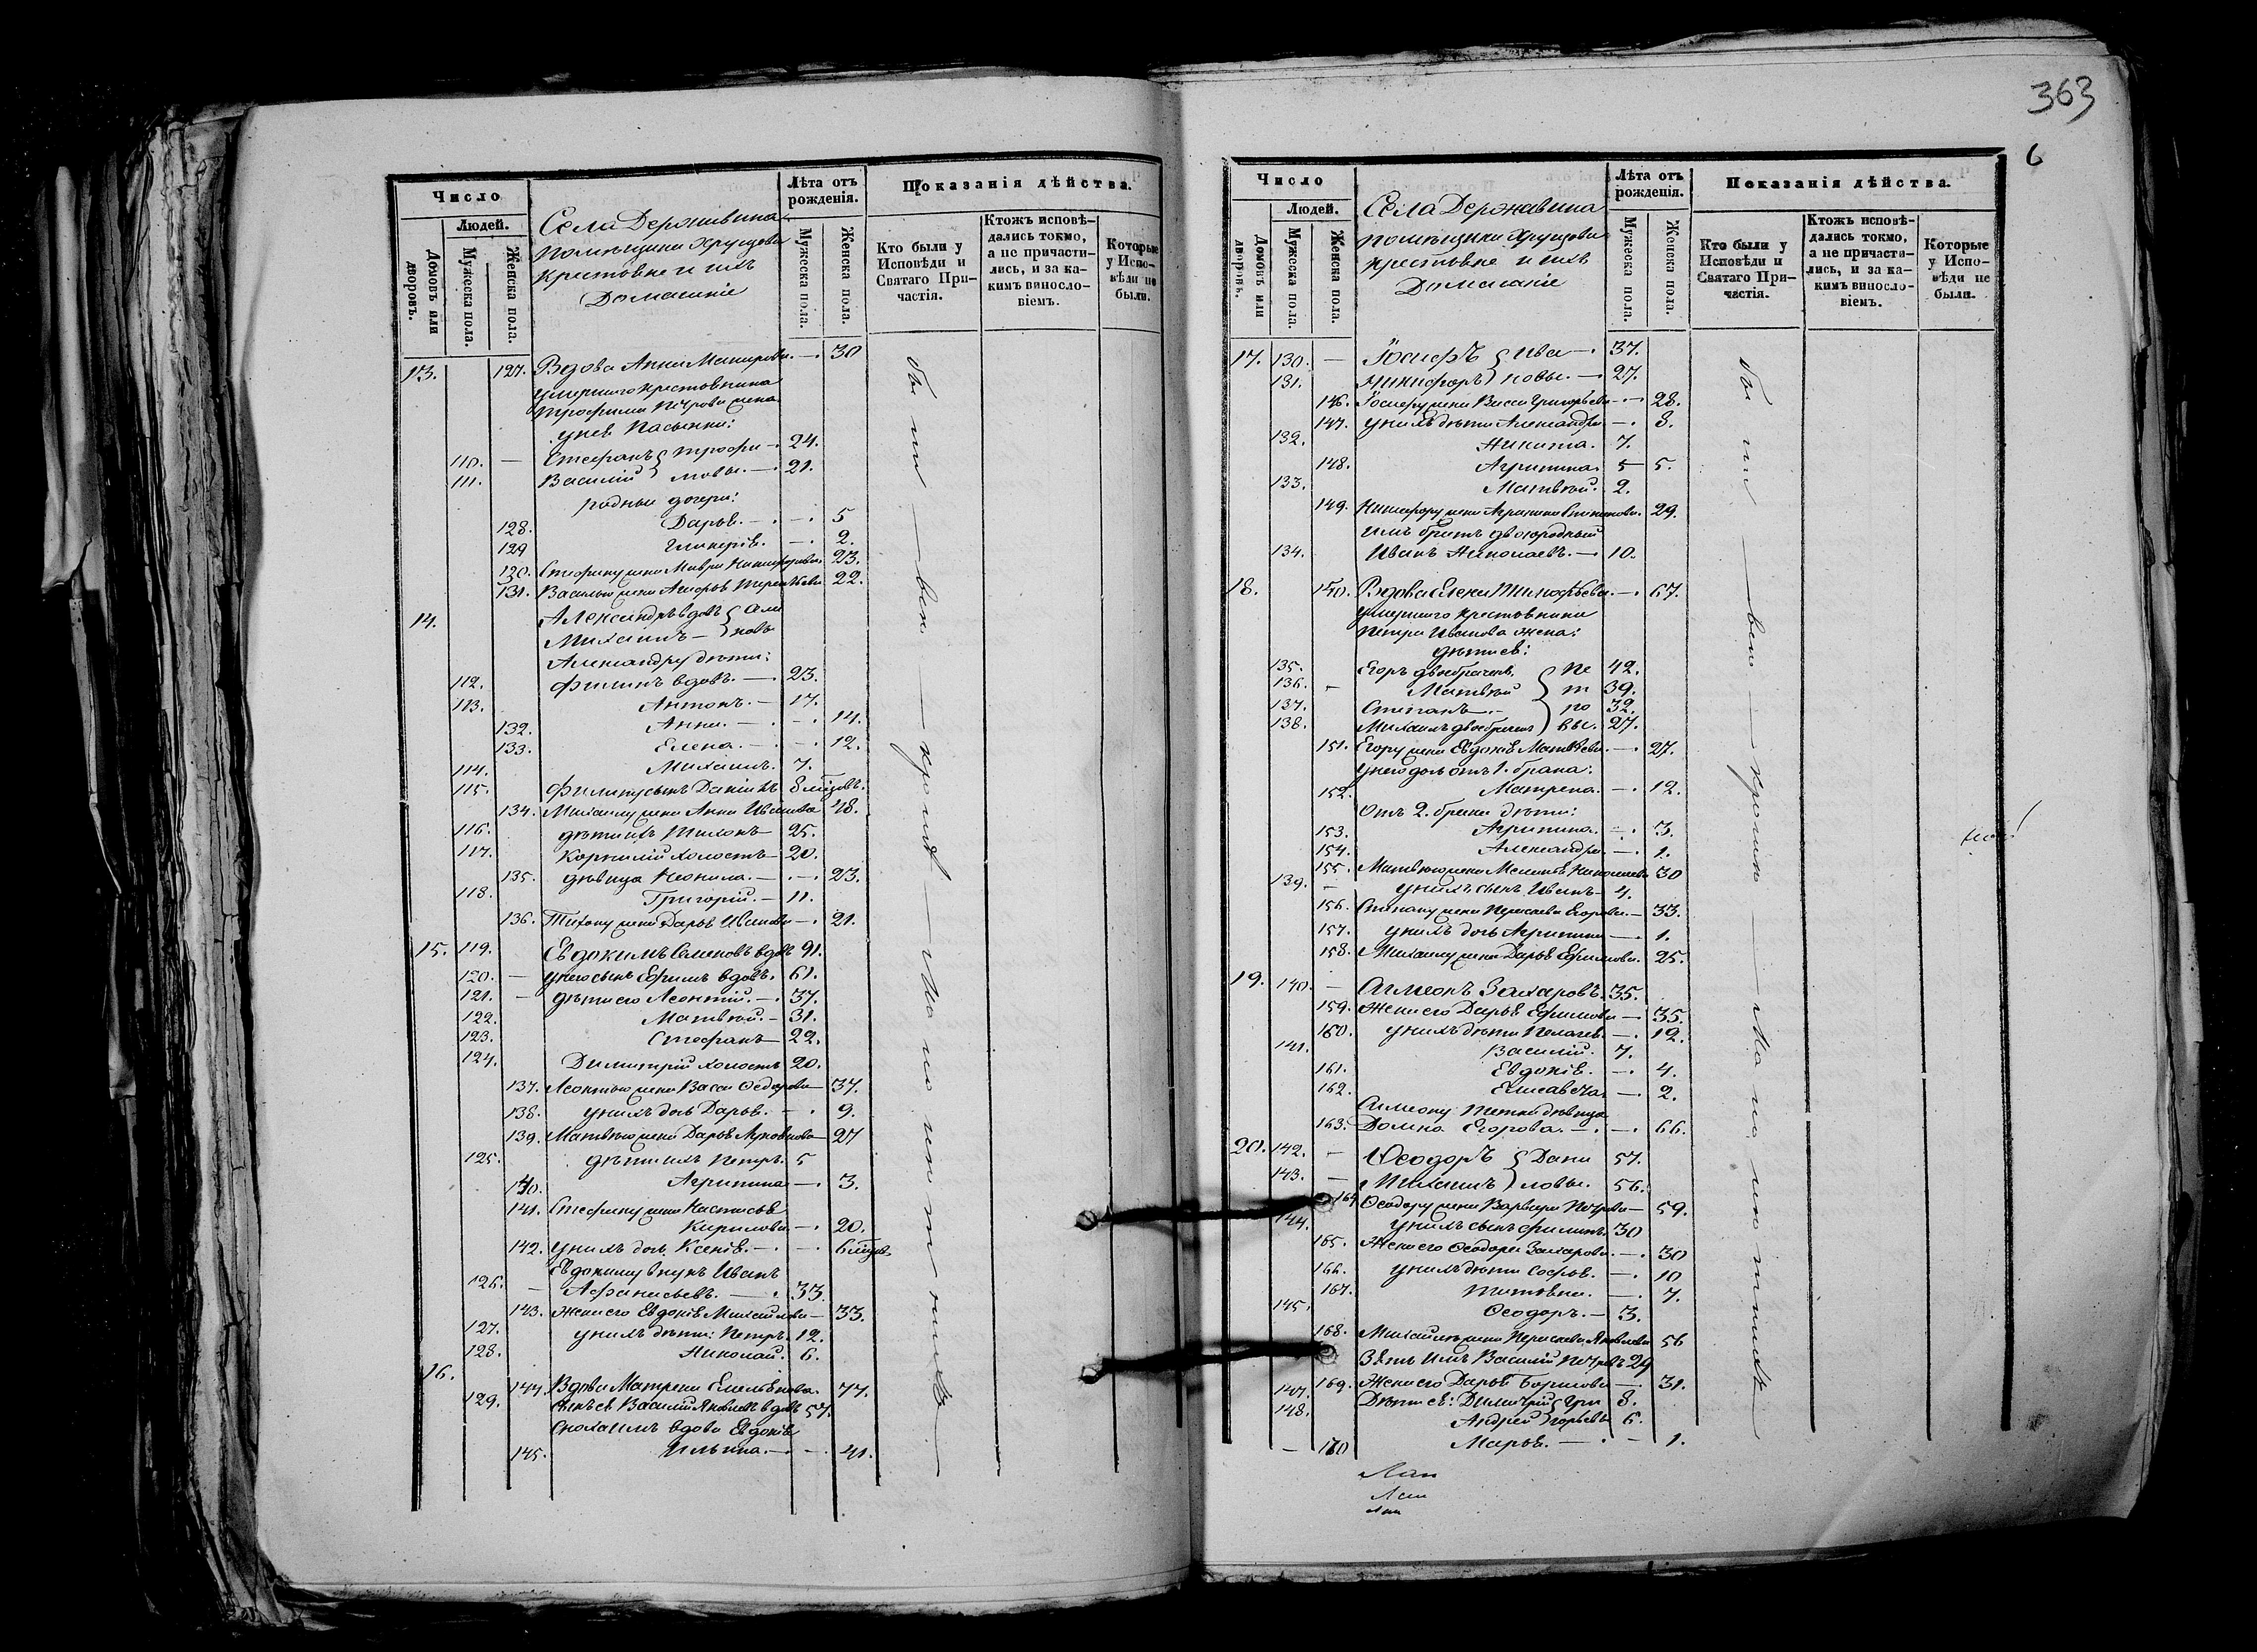 363
6
Число
Людей.
Домовъ или дворовъ.
Мужеска пола.
Женска пола.
Села Державина
помѣщика Хрущова
крестьяне и ихъ
Домашніе
Лѣта отъ рожденія.
Мужеска пола.
Женска пола.
Показанія дѣйства.
Кто были у Исповѣди и Святаго Причастія.
Ктожъ исповѣдались токмо, а не причастились, и за какимъ винословіемъ.
Которые у Исповѣди не были.
13. 127. Вдова Анна Макарова. — 30
умершаго крестьянина
Трофима Петрова жена
у нея пасынки:
110. — Стефанъ } Трофи — 24.
111. Василій } мовы. — 21.
родныя дочери:
128. Дарья. — . — . 5
129 Гликерія. — . 2.
130. Стефану жена Мавра Никифорова 23.
131. Василью жена Агафья Терентьева 22.
14. Александръ вдовъ {
Михаилъ — {
Александру дѣти:
112. Филипъ вдовъ. — . 23.
113. Антонъ. — 17.
132. Анна. — . — . 14.
133. Елена. — . — . 12.
114. Михаилъ. 7.
115. Филипу сынъ Даніилъ 8 мѣсяцовъ.
134. Михаилу жена Анна Иванова 48.
116. дѣти ихъ Тихонъ — 25.
117. Корнилій холостъ — 20.
135. дѣвица Неонила. — . — . 23.
118. Григорій. — 11.
136. Тихону жена Дарья Иванова — . 21.
15. 119. Евдокимъ Семеновъ вдовъ 91.
120. — у него сынъ Ефимъ вдовъ. 61.
121. — дѣти его Леонтій. — . 37.
122. Матвѣй. — 31.
123. Стефанъ — 22.
124. Димитрій холостъ 20.
137. Леонтью жена Васса Ѳедорова — 37.
138. у нихъ дочь Дарья. — . 9.
139. Матвѣю жена Дарья Лукьянова — 27
125. дѣти ихъ Петръ. 5
140. Агрипина — . 3.
141. Стефану жена Настасья
Кирилова — . 20.
142. у нихъ дочь Ксенія. — . — . 6 мѣсяц.
Евдокиму внукъ Иванъ
126. — Афанасьевъ. — . 33
143. Жена его Евдокія Михайлова — 33.
127. у нихъ дѣти: Петръ. 12.
128. Николай. 6.
16. 144. Вдова Матрена Емельянова. 77.
129. сынъ ея Василій Яковлевъ вдовъ 57.
Сноха имъ вдова Евдокія
145. Ильина. — . — . 41.
бы ли — вси — кромѣ — Ма ло лѣт ныхъ
Число
Людей.
Домовъ или дворовъ.
Мужеска пола.
Женска пола.
Села Державина
помѣщика Хрущова
крестьяне и ихъ
Домашніе
Лѣта отъ рожденія.
Мужеска пола.
Женска пола.
Показанія дѣйства.
Кто были у Исповѣди и Святаго Причастія.
Ктожъ исповѣдались токмо, а не причастились, и за какимъ винословіемъ.
Которые у Исповѣди не были.
17. 130. — Іосифъ { Ива — . 37.
131. Никифоръ } новы. — . 27.
146. Іосифу жена Васса Григорьева — . — 28.
147. у нихъ дѣти Александра — . 8.
132. Никита. 7.
148. Агрипина. 5 5.
133. Матвѣй. 2.
149. Никифору жена 29.
имъ братъ двоюродный
134. Иванъ Николаевъ. — . 10.
18. 150. Вдова Елена Тимофѣева. — . 67.
умершаго крестьянина
Петра Иванова жена:
дѣти ея:
135. Егоръ двоебраченъ { Пе 42.
136. — Матвѣй } т 39.
137. Степанъ. — ро 32.
138. Михаилъ двоебраченъ } вы. 27.
151. Егору жена Евдокія Матвѣева. — . 27.
у него дочь отъ 1. брака:
152. Матрена. — . 12.
Отъ 2. брака дѣти:
153. Агрипина. — . 3.
154. Александра. — . 1.
155. Матвѣю жена Меланья Николаева 30
139. — у нихъ сынъ Иванъ — 4.
156. Степану жена Парасковья Егорова. — 33.
157. у нихъ дочь Агрипина — . 1.
158. Михаилу жена Дарья Ефимова. 25.
19. 140. — Симеонъ Захаровъ. 35.
159. Жена его Дарья Ефимова — . 35.
160. у нихъ дѣти Пелагея. — . 12.
141. Василій. 7.
161. Евдокія. — . 4.
162. Елисавета. — . 2.
Симеону тетка дѣвица
163. Домна Егорова. — . — . 66.
20. 142. — Ѳеодоръ { Дани 57.
143. — Михаилъ } ловы. 56.
164 Ѳеодору жена Варвара Петрова — 59.
144. у нихъ сынъ Филипъ. 30
165. Жена его Ѳеодора Захарова. — . 30
166. у нихъ дѣти Софья. — . 10
167. Татьяна. — . 7.
145. Ѳеодоръ. — 3.
168. Михайлѣ жена Парасковья Яковлева 56
Зять имъ Василій Петровъ 29
169. Жена его Дарья Борисова — . 31.
147. Дѣти ея: Димитрій { Гри 8.
148. Андрей } горьевы 6.
— 170 Марья. — . — 1.
бы ли — вси — кромѣ — Ма ло лѣт ныхъ